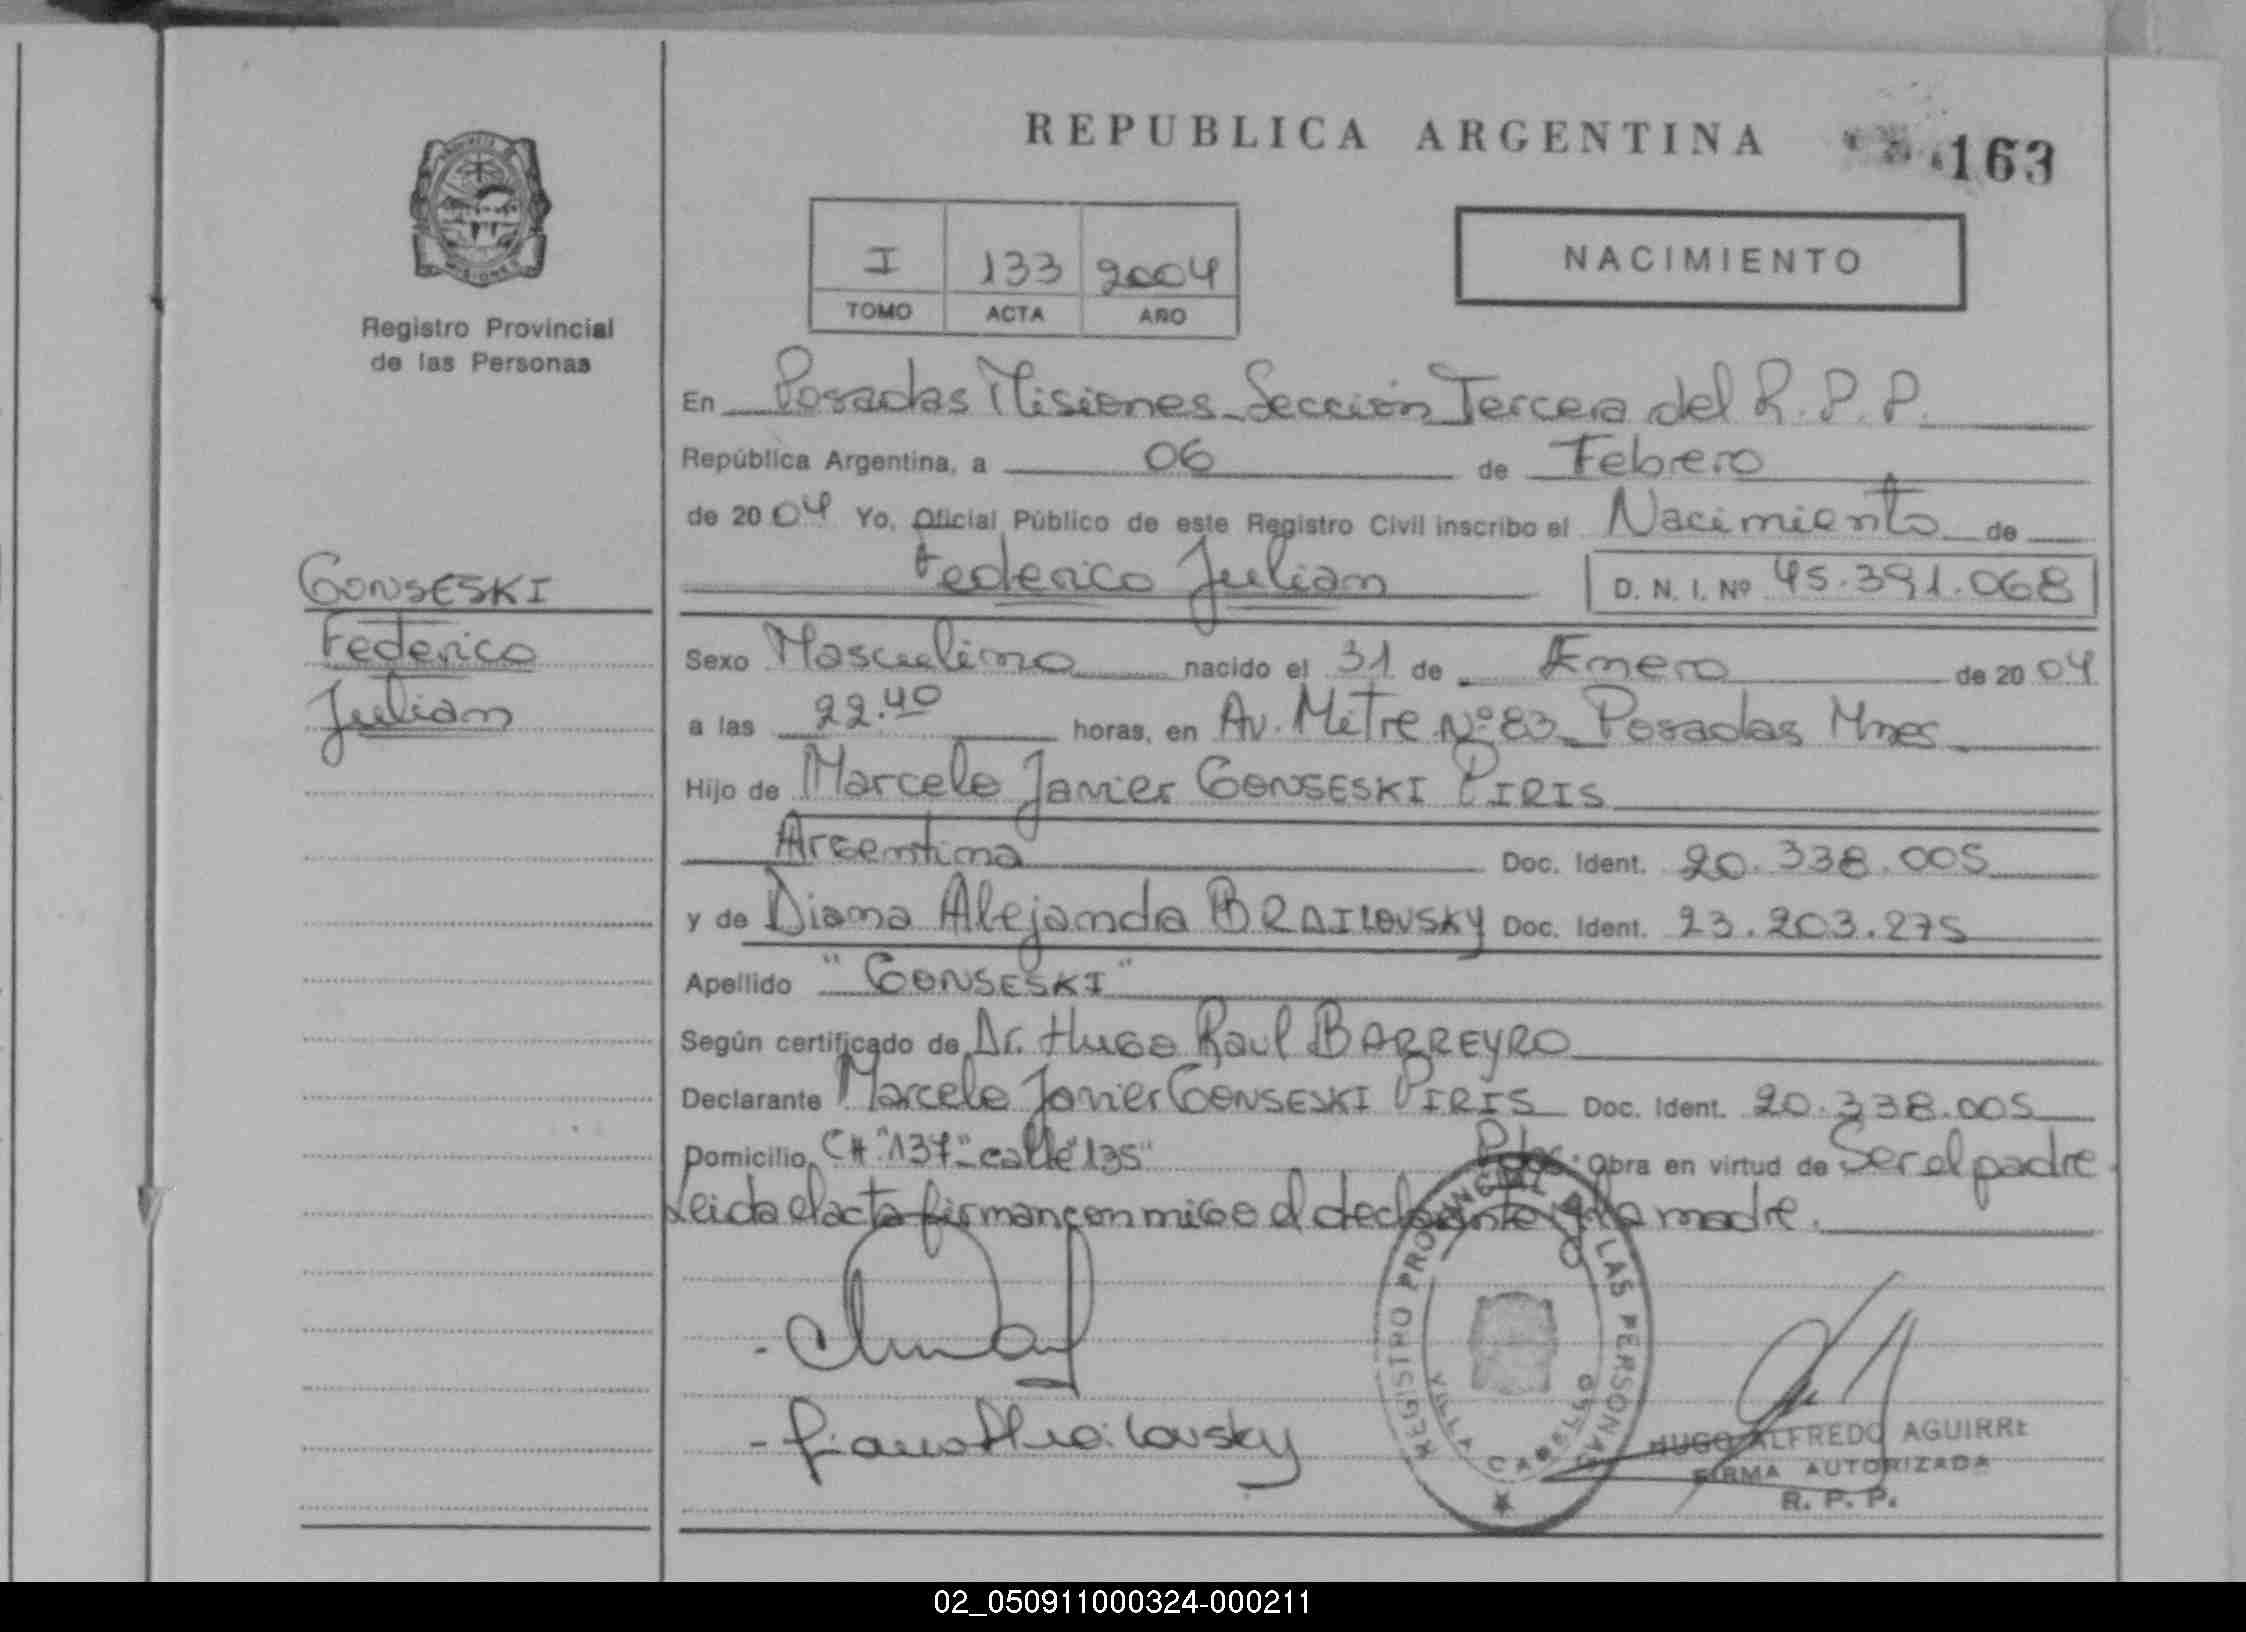 REPUBLICA ARGENTINA
163
I 133 2004
TOMO ACTA AÑO
NACIMIENTO
Registro Provincial
de las Personas
En Posadas Misiones Sección Tercera del R.P.P.
República Argentina, a 06 de Febrero
de 2004 Yo, Oficial Público de este Registro Civil inscribo el Nacimiento de
Federico Julian D. N. I. Nº 45.391.068
GONSESKI
Federico
Julian
Sexo Masculino nacido el 31 de Enero de 2004
a las 22.40 horas, en Av. Mitre Nº 83 Posadas Mnes
Hijo de Marcelo Javier GONSESKI PIRIS
Argentina Doc. Ident. 20.338.005
y de Diana Alejandra BRAILOVSKY Doc. Ident. 23.203.275
Apellido "GONSESKI"
Según certificado de Dr. Hugo Raul BARREYRO
Declarante Marcelo Javier GONSESKI PIRIS Doc. Ident. 20.338.005
Domicilio CH "137" calle "135" Pdas. Obra en virtud de Ser el padre
Leida el acta firman conmigo el declarante y la madre.
REGISTRO PROVINCIAL DE LAS PERSONAS
VILLA CABELLO
HUGO ALFREDO AGUIRRE
FIRMA AUTORIZADA
R. P. P.
02_050911000324-000211